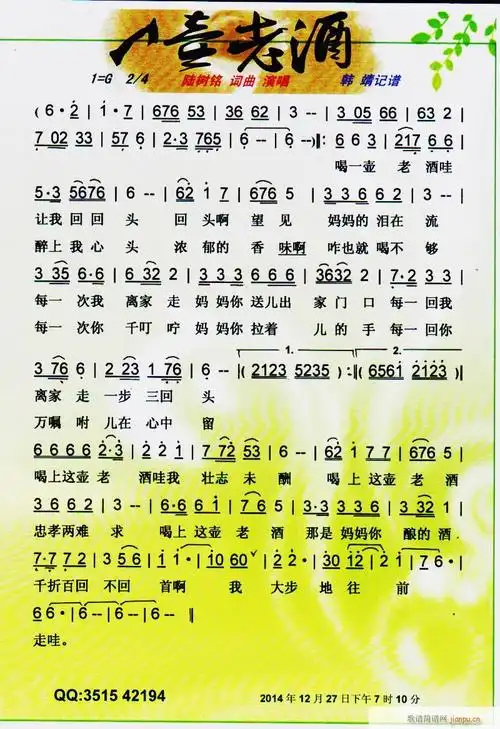 一壶老酒
1=G 2/4 陆树铭 词曲 演唱 韩 靖记谱
( 6·2 | i·i | 676 53 | 36 62 | 3 -- | 3 05 66 | 63 2 |
7 02 33 | 57 6 | 2·3 765 | 6 -- | 6 -- )‖: 6 6 3 | 217 6 6 |
喝一壶 老 酒哇
5·3 5676 | 6 -- | 62 i 7 | 676 5 | 3 3 6 2 | 3 3 6 6 |
让我 回 回 头 回 头啊 望 见 妈妈的 泪在 流
醉上 我 心 头 浓 郁的 香 味啊 咋也就 喝不 够
3 35 6·6 | 6 32 2 | 3·3 3 6 | 6 6 6 | 3632 2 | 7·2 3 3 |
每一 次我 离家 走 妈妈你 送儿出 家 门 口 每一 回我
每一 次你 千叮 咛 妈妈你 拉着 儿 的 手 每一 回你
3 76 6 | 2 23 1 76 | 6 -- | 6 -- |(2123 5235 ):‖(6561 2123 )‖
1. 2.
离家 走 一步 三回 头
万嘱 咐 儿在 心中 留
6 6 6 6 2·3 | 2 2 1 | 7 72 53 | 6 -- | 62 i 7 7 | 676 5 |
喝上这壶 老 酒哇我 壮志 未 酬 喝 上 这壶 老 酒
3 6 6 2 | 3 -- | 6·6 6 i | 7 6 5 | 3·3 3 6 | 3 32 1 |
忠孝两难 求 喝上 这壶 老 酒 那是 妈妈你 酿的 酒
7·7 7 2 | 3 5 6 | i i· | i0 60 | 2· 2 -- | 30 12 | 2 i | 7 6· |
千折百回 不回 首啊 我 大步 地 往 前
6 6· | 6 -- | 6 -- | 6 -- ‖
走哇。
QQ:3515 42194 2014 年 12 月 27 日下午 7 时 10 分
歌谱简谱网 jianpu.cn